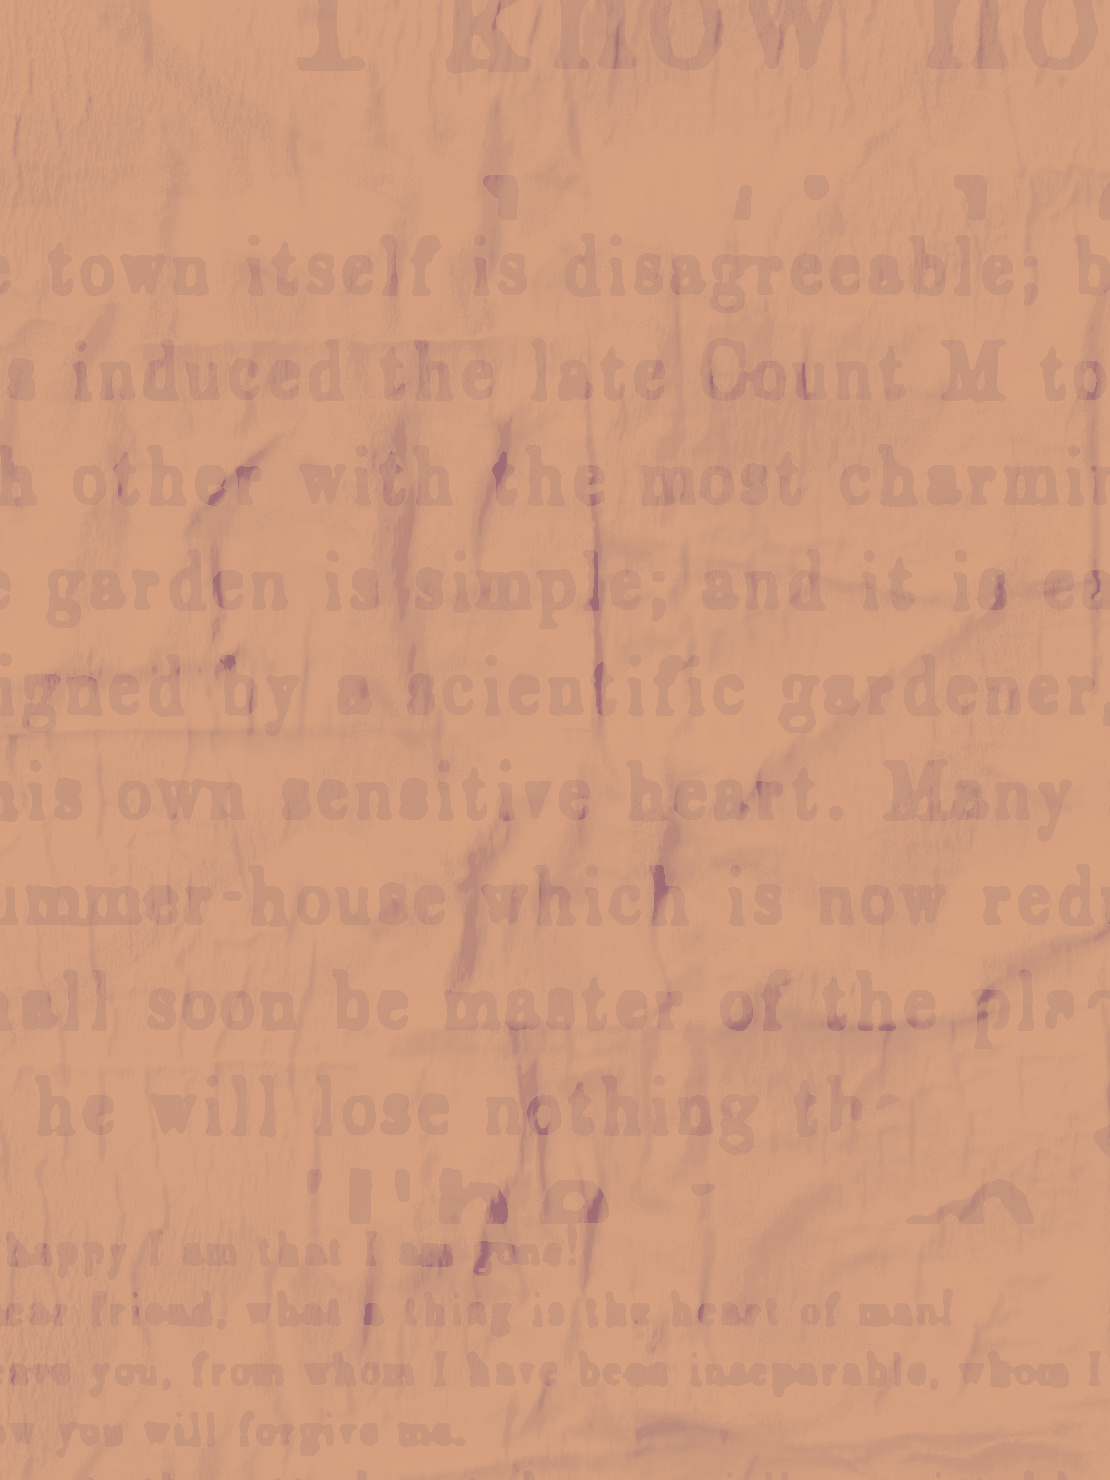 I know no
e town itself is disagreeable; b
s induced the late Count M to
h other with the most charmin
e garden is simple; and it is ea
igned by a scientific gardener,
his own sensitive heart. Many
ummer-house which is now red
hall soon be master of the pla
he will lose nothing th
happy I am that I am gone!
ear friend, what a thing is the heart of man!
eave you, from whom I have been inseparable, whom I
ow you will forgive me.